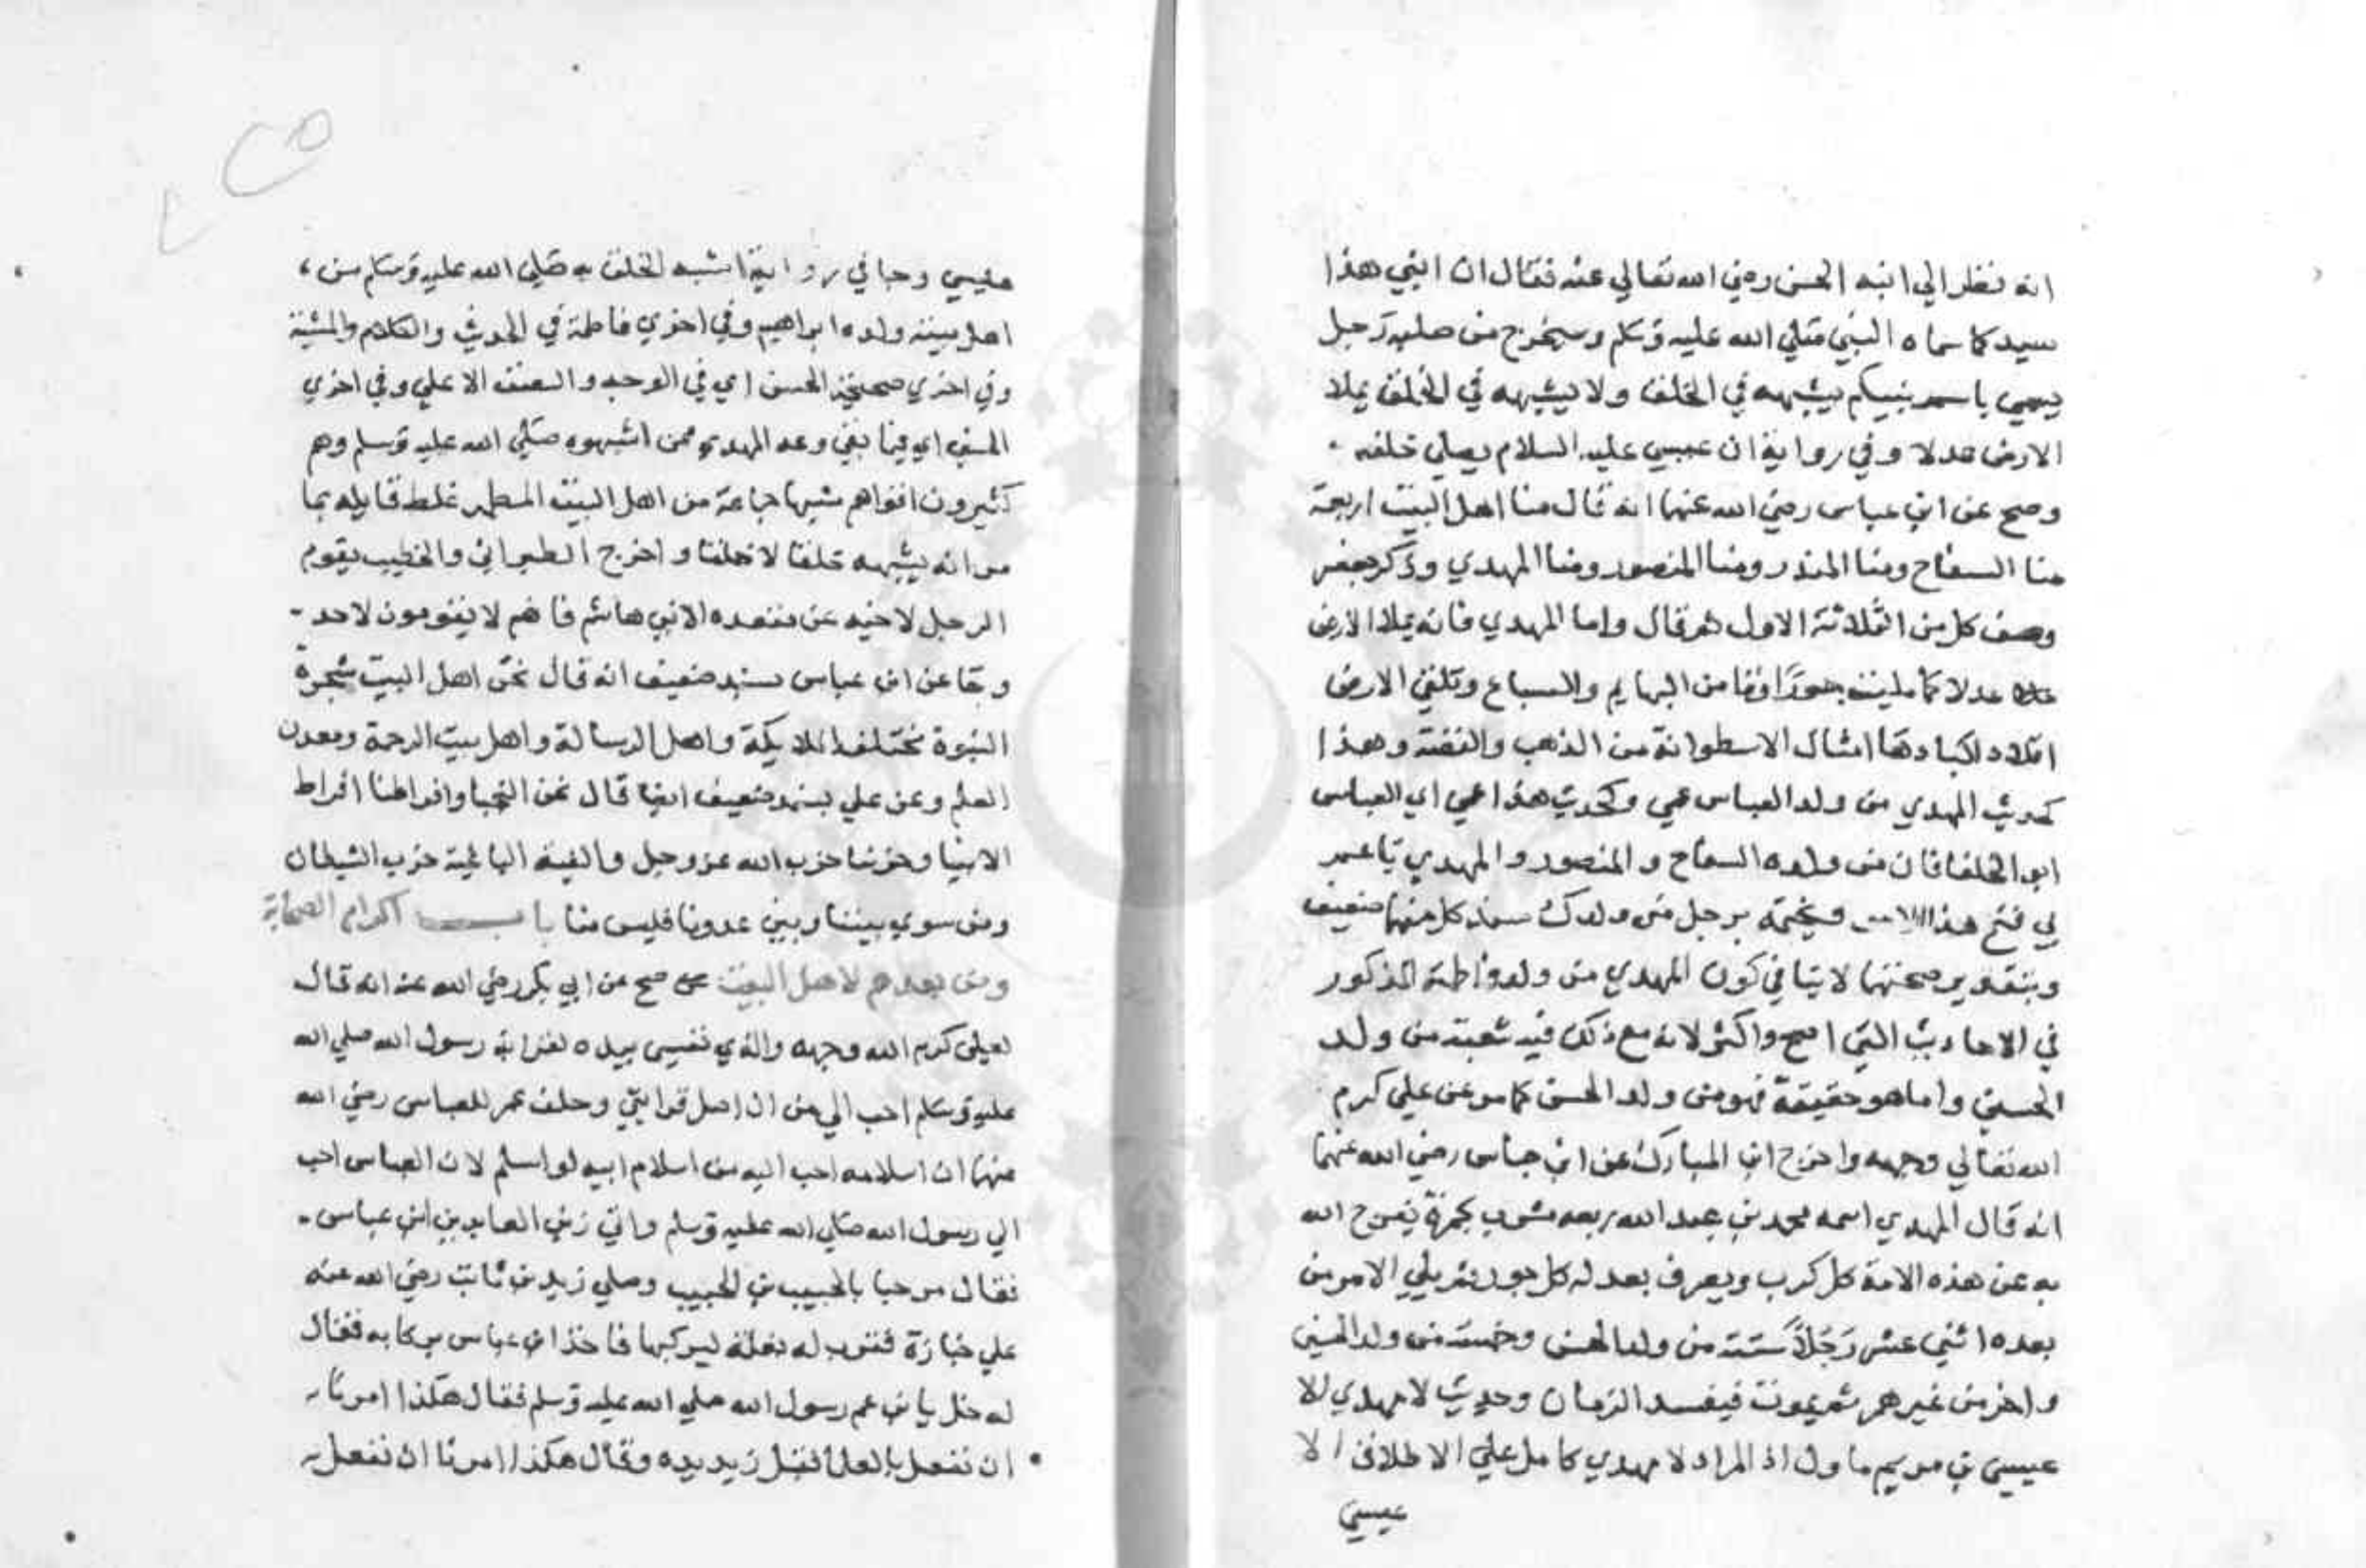 انه نظر الي ابنه الحسن رضي الله تعالي عنه فقال ان ابني هذا
سيد كما سماه النبي صلي الله عليه وسلم وسيخرج من صلبه رجل
يسمي باسم نبيكم يشبهه في الخلق ولا يشبهه في الخلق يملا
الارض عدلا وفي رواية ان عيسي عليه السلام يصلي خلفه
وصح عن ابن عباس رضي الله عنهما انه قال منا اهل البيت اربعة
منا السفاح ومنا المنذر ومنا المنصور ومنا المهدي وذكر بعض
وصف كل من الثلاثة الاول ثم قال واما المهدي فانه يملا الارض
عدلا كما مليت جورا وتامن البهايم والسباع وتلقي الارض
افلاد اكبادها امثال الاسطوانة من الذهب والفضة وهذا
كحديث المهدي من ولد العباس عمي وكحديث هذا عمي اي العباس
ابو الخلفا فان من ولده السفاح والمنصور والمهدي يا عمر
بي فتح هذا الامر ويختمه برجل من ولدك سند كل منهما ضعيف
وبتقدير صحتهما لا ينافي كون المهدي من ولد فاطمة المذكور
في الاحاديث التي اصح واكثر لانه مع ذلك فيه شعبة من ولد
الحسين واما هو حقيقة فهو من ولد الحسن كما مر عن علي كرم
الله تعالي وجهه واخرج ابن المبارك عن ابن عباس رضي الله عنهما
انه قال المهدي اسمه محمد بن عبد الله ربعه مشرب بحمرة يفرج الله
به عن هذه الامة كل كرب ويصرف بعدله كل جور ثم يلي الامر من
بعده اثني عشر رجلا ستة من ولد الحسن وخمسة من ولد الحسين
واخر من غيرهم ثم يموت فيفسد الزمان وحديث لا مهدي الا
عيسي بن مريم ماول اذ المراد لا مهدي كامل علي الاطلاق الا
عيسي
عيسي وجا في رواية اشبه الخلق به صلي الله عليه وسلم من
اهل بيته ولده ابراهيم وفي اخري فاطمة في الحديث والكلام والمشية
وفي اخري صحيحة الحسن اي في الوجه والنصف الاعلي وفي اخري
الحسين اي فيما بقي وعد المهدي ممن اشبهوه صلي الله عليه وسلم وهم
كثيرون اقواهم شبها جماعة من اهل البيت المطهر غلط قايله بما
مر انه يشبهه خلقا لا خلقا واخرج الطبراني والخطيب يقوم
الرجل لاخيه عن مقعده الا بني هاشم فانهم لا يقومون لاحد
وجا عن ابن عباس بسند ضعيف انه قال نحن اهل البيت شجرة
النبوة مختلف الملايكة واهل الرسالة واهل بيت الرحمة ومعدن
العلم وعن علي بسند ضعيف ايضا قال نحن النجبا وافراطنا افراط
الانبيا وحزبنا حزب الله عز وجل والفية الباغية حزب الشيطان
ومن سوي بيننا وبين عدونا فليس منا باب اكرام الصحابة
ومن بعدهم لاهل البيت صح عن ابي بكر رضي الله عنه انه قال
لعلي كرم الله وجهه والذي نفسي بيده لقرابة رسول الله صلي الله
عليه وسلم احب الي من ان اصل قرابتي وحلف عمر للعباس رضي الله
عنهما ان اسلامه احب اليه من اسلام ابيه لو اسلم لان العباس احب
الي رسول الله صلي الله عليه وسلم واتي زين العابدين ابن عباس
فقال مرحبا بالحبيب بن الحبيب وصلي زيد بن ثابت رضي الله عنه
علي جنازة فقرب له بغلة ليركبها فاخذ ابن عباس بركابه فقال
له خل يا بن عم رسول الله صلي الله عليه وسلم فقال هكذا امرنا
ان نفعل بالعلما فقبل زيد يده وقال هكذا امرنا ان نفعل